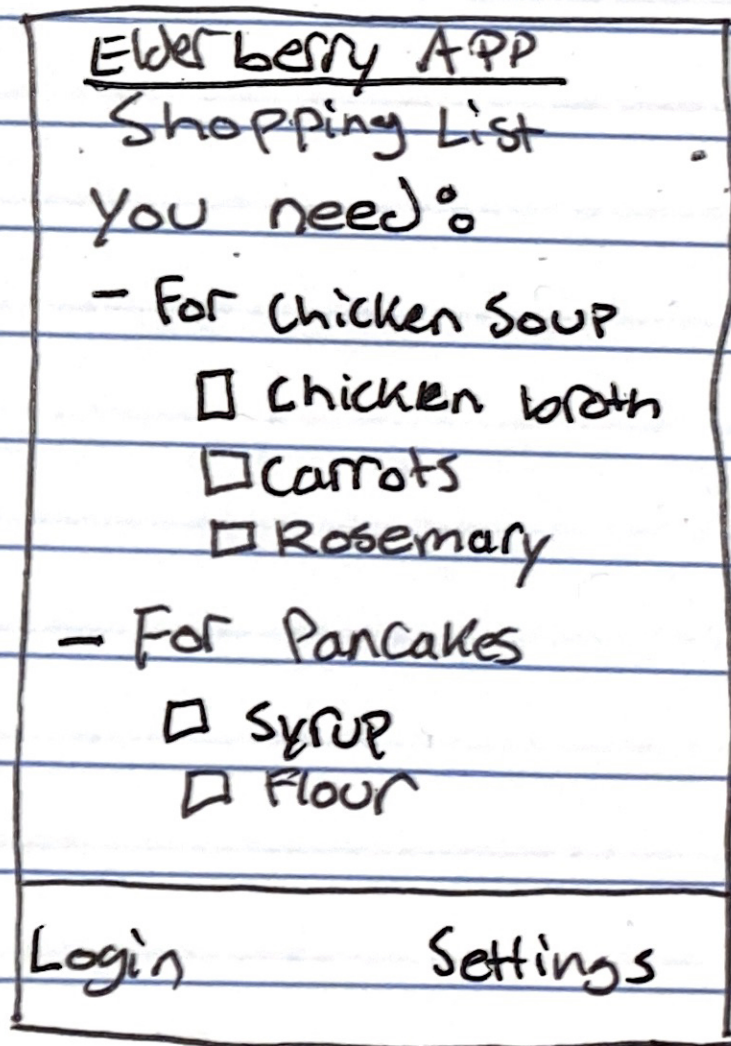 Elderberry APP
Shopping List
You need:
- For Chicken Soup
Chicken broth
Carrots
Rosemary
- For Pancakes
Syrup
Flour
Login Settings